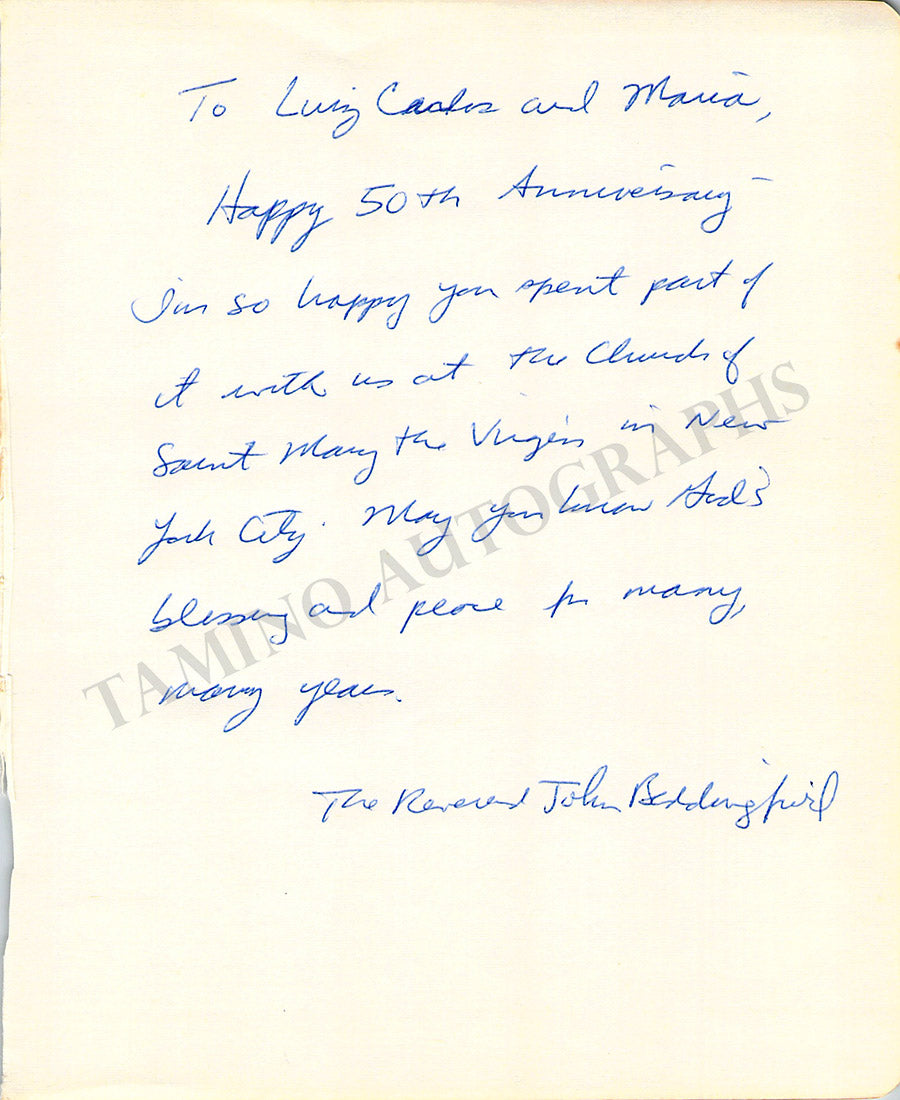 To Luiz Carlos and Maria,
Happy 50th Anniversary -
I'm so happy you spent part of
it with us at the Church of
Saint Mary the Virgin in New
York City. May you know God's
blessing and peace for many,
many years.
The Reverend John Beddingfield
TAMINO AUTOGRAPHS